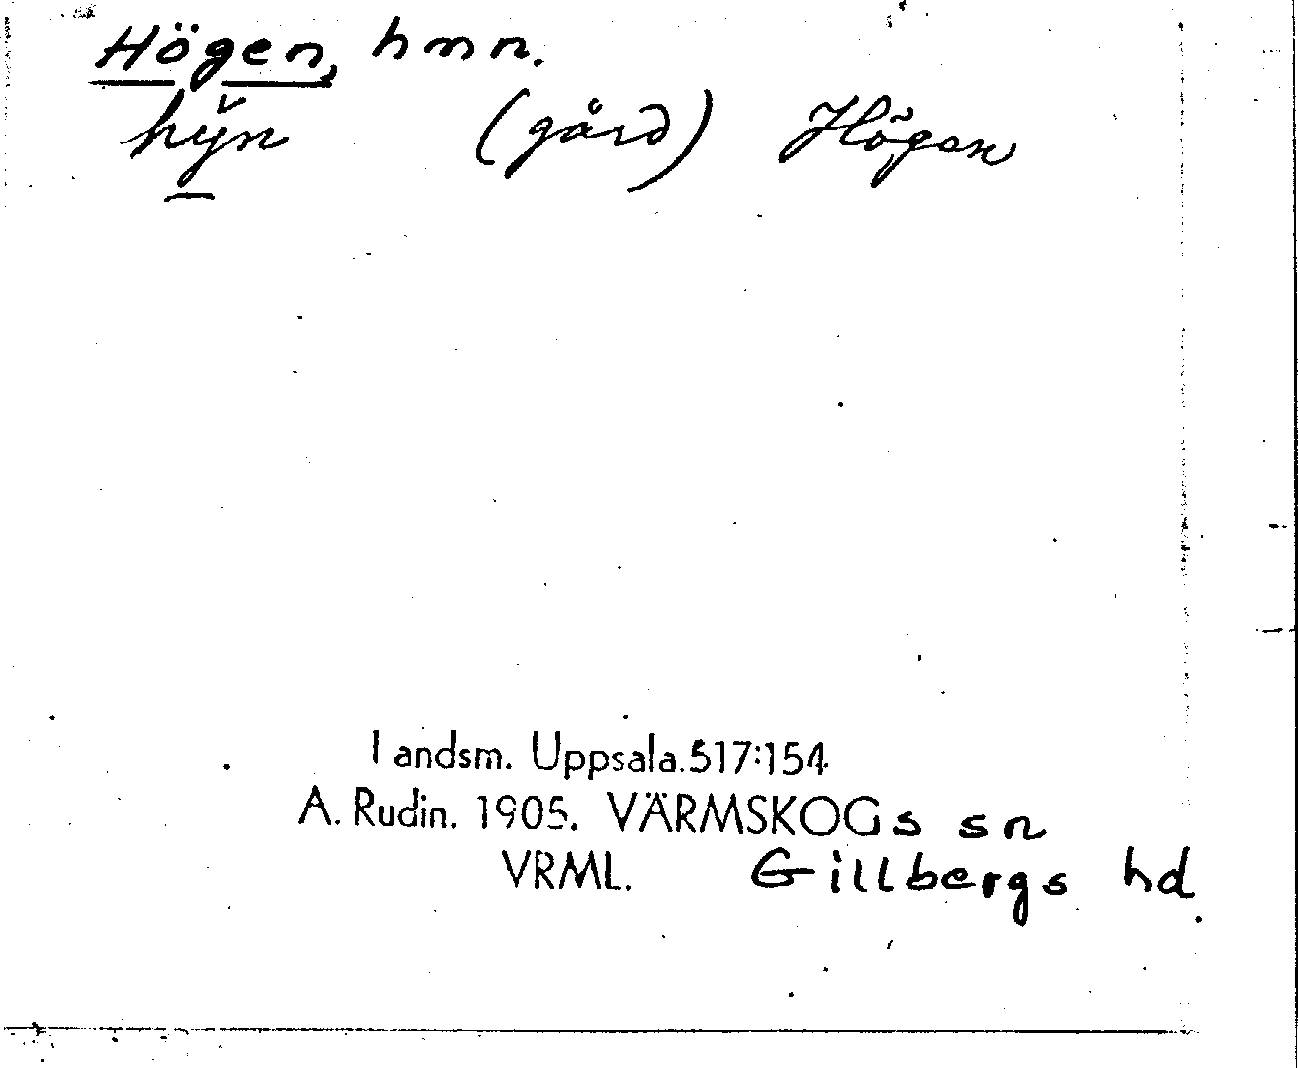 Högen, hmn.
hy̌n (gård) Högen
Landsm. Uppsala. 517:154
A. Rudin. 1905. VÄRMSKOGs sn
VRML. Gillbergs hd